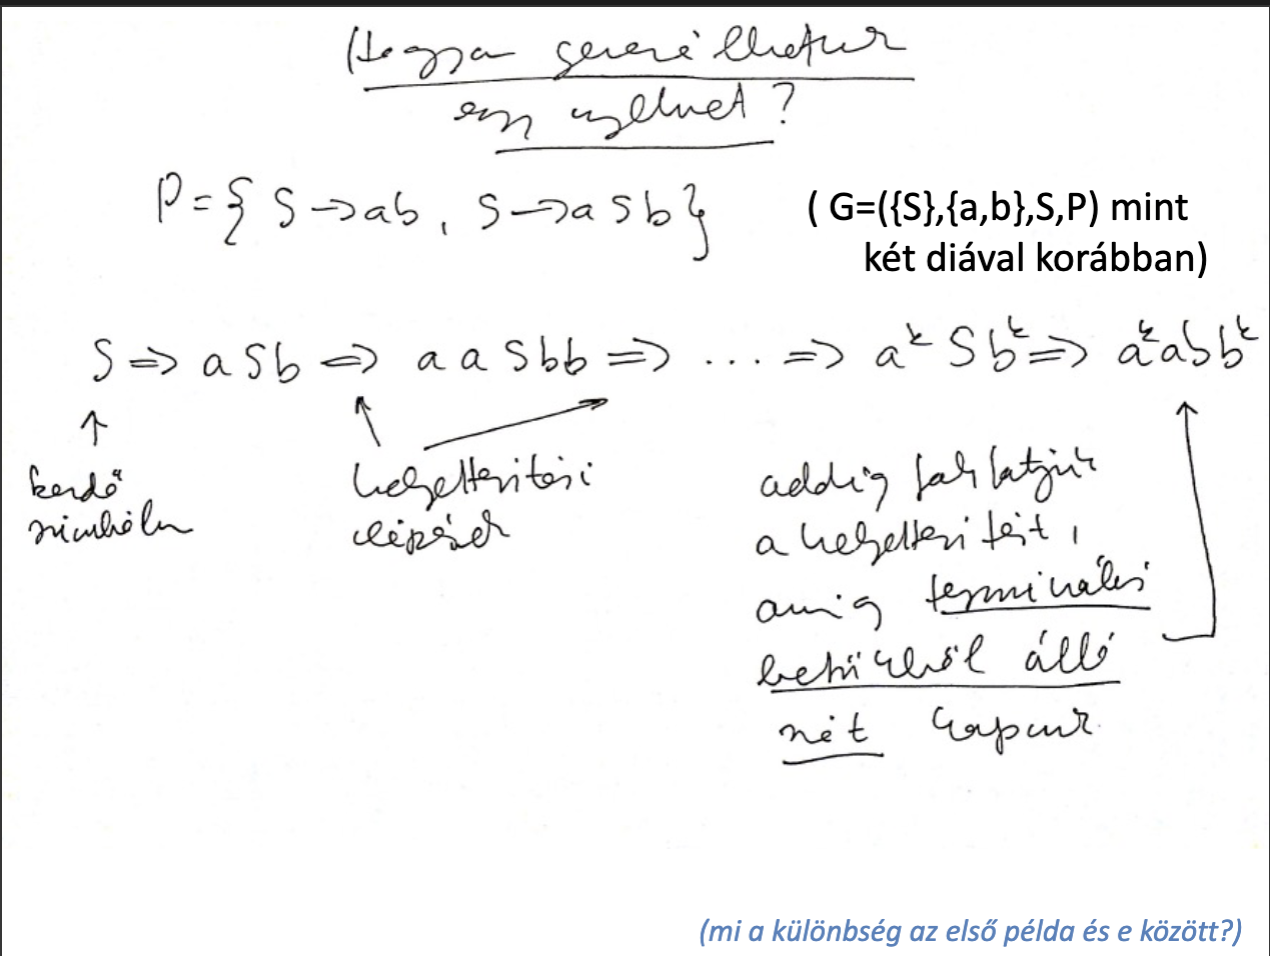 Hogyan generálhatunk
egy nyelvet?
P={ S→ab, S→aSb}
( G=({S},{a,b},S,P) mint
két diával korábban)
S ⇒ aSb ⇒ aaSbb ⇒ ... ⇒ aᵏSbᵏ ⇒ aᵏabbᵏ
kezdő
szimbólum
helyettesítési
lépések
addig folytatjuk
a helyettesítést,
amíg terminális
betűkből álló
szót kapunk
(mi a különbség az első példa és e között?)